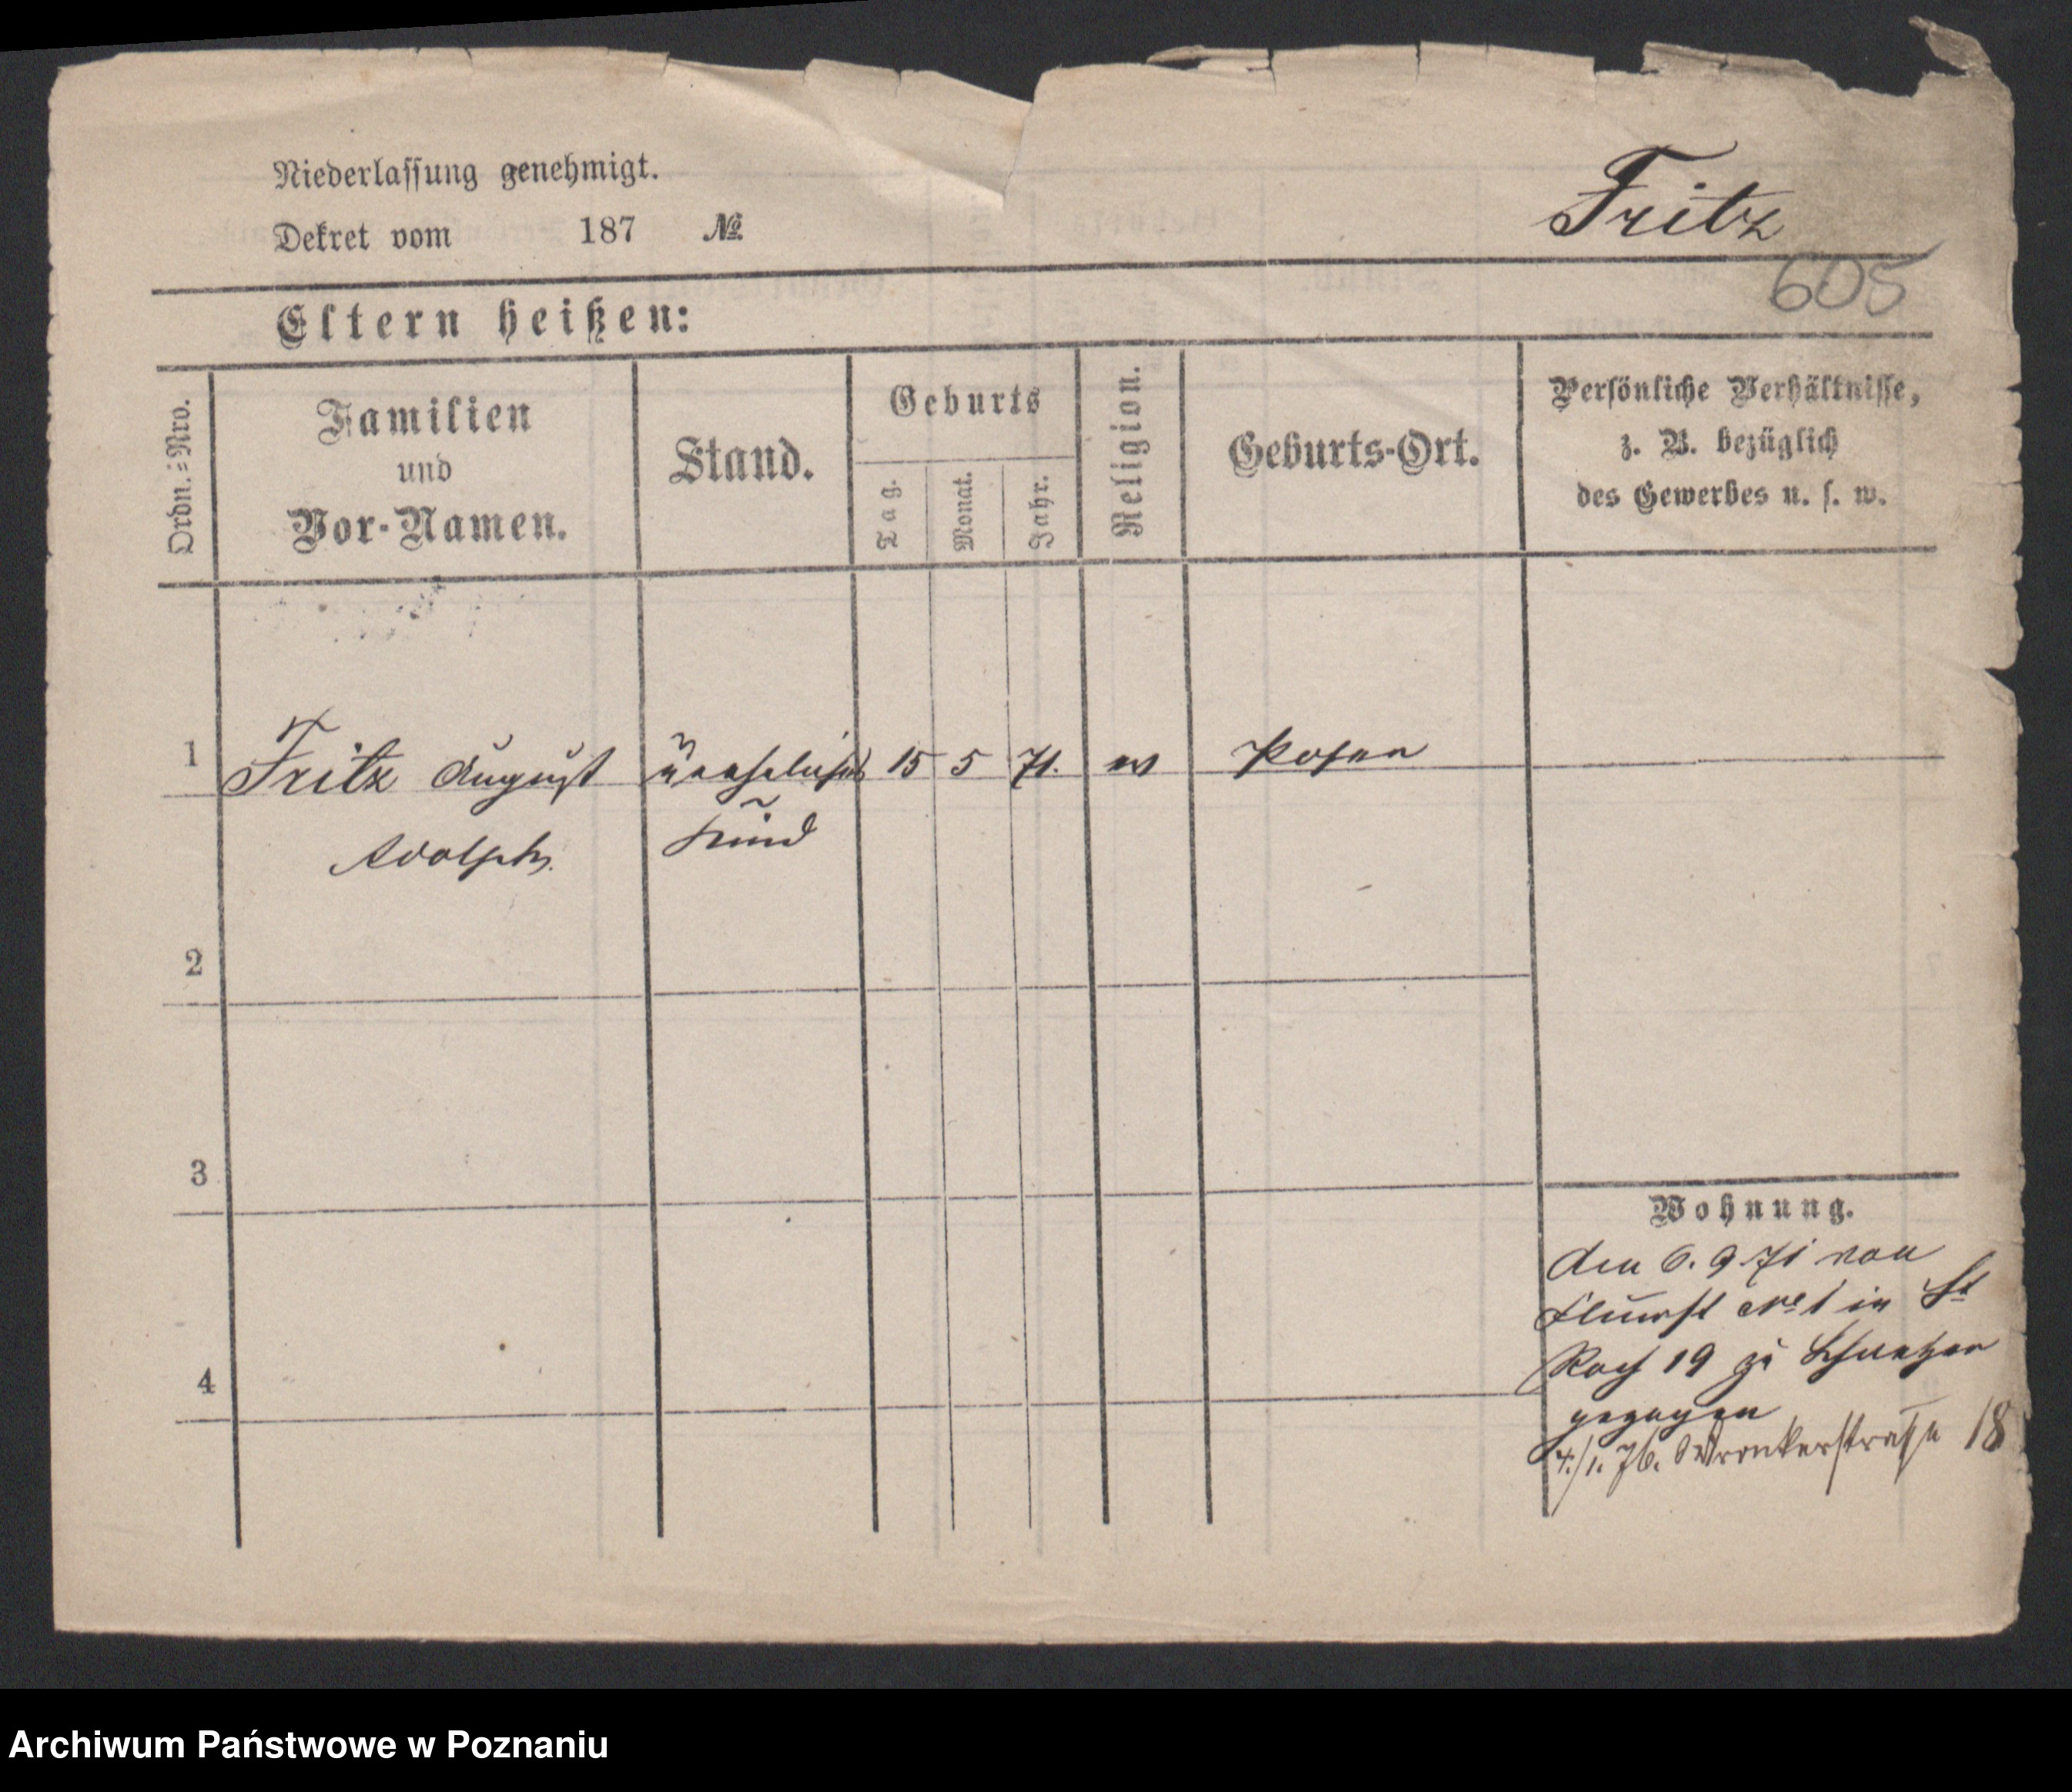 Niederlassung genehmigt.
Dekret vom 187 №
Fritz
605
Eltern heißen:
Ordn.=Nro.
Familien
und
Vor-Namen.
Stand.
Geburts
Tag.
Monat.
Jahr.
Religion.
Geburts-Ort.
Persönliche Verhältnisse,
z. B. bezüglich
des Gewerbes u. s. w.
1 Fritz August unehelich 15 5 71. ev Posen
Adolph. Kind
2
3
4
Wohnung.
Am 6. 9. 71 von
№ 1 in St
Roch 19 zu
gezogen
4./1. 76. Wronkerstraße 18
Archiwum Państwowe w Poznaniu